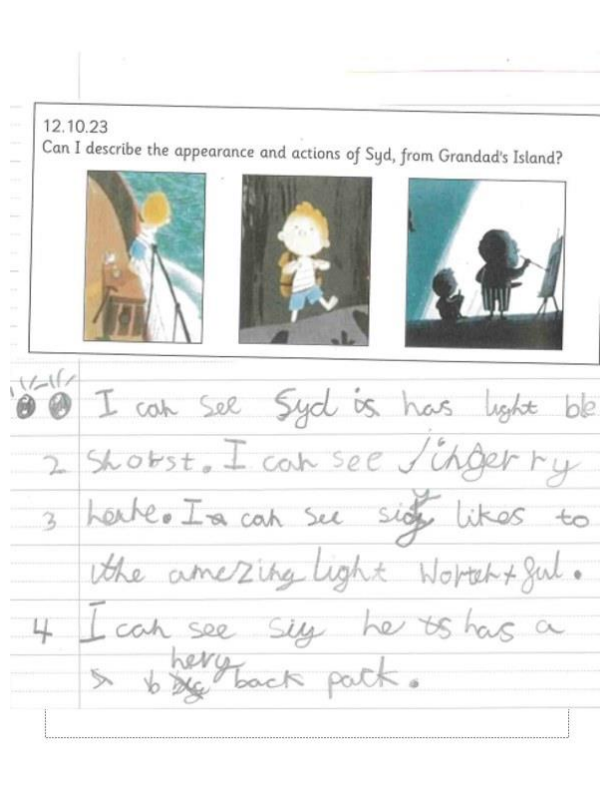 12.10.23
Can I describe the appearance and actions of Syd, from Grandad's Island?
I can see Syd is has light ble
2 Shorst. I can see jingerry
3 I can see likes to
the amezing light
4 I can see siy he has a
hery
back pack.